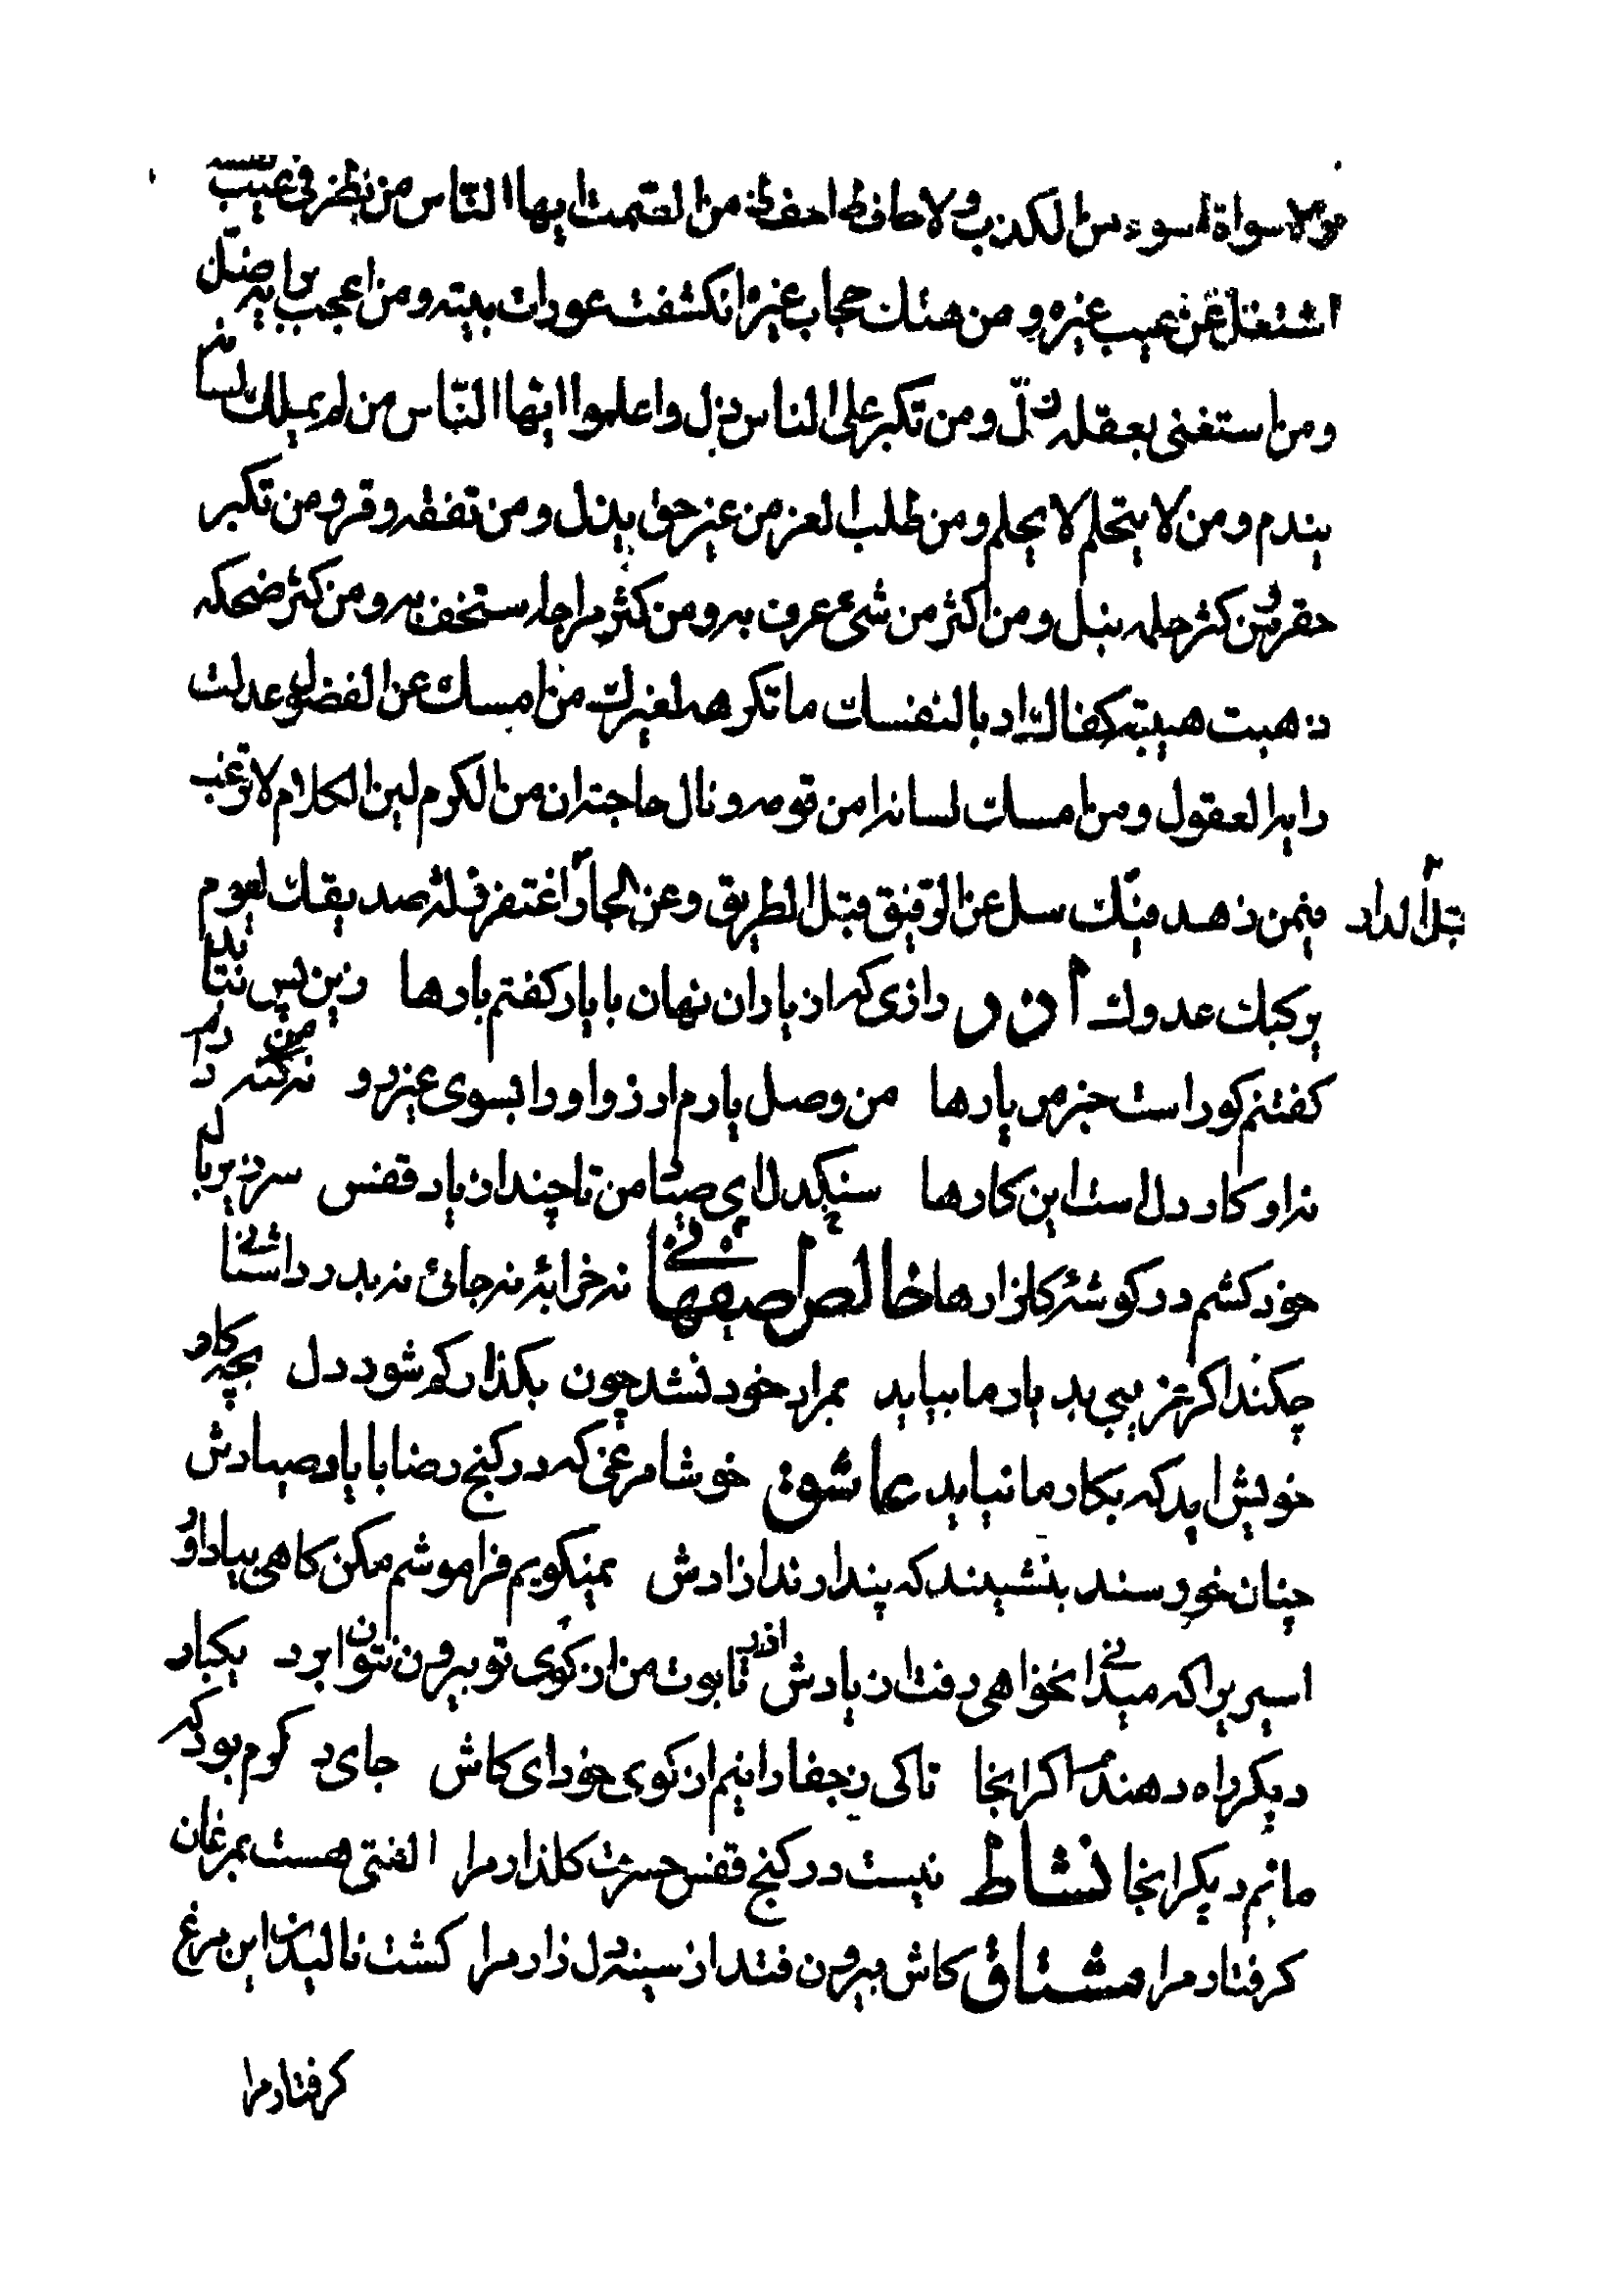 ولا سواة اسوء من الكذب ولا حافظ احفظ من الصمت ایها الناس من نظر فی عیب نفسه
اشتغل عن عیب غیره و من هتك حجاب غیره انكشفت عورات بیته و من اعجب برایه ضلّ
و من استغنی بعقله زلّ و من تكبر علی الناس ذل و اعلموا ایها الناس من لم یملك لسانه
یندم و من لا یتحلم لا یحلم و من طلب العز من غیر حق یذل و من تفقه وقر و من تكبر
حقر و من كثر حلمه نبل و من اكثر من شیء عرف به و من كثر مزاحه ستخف به و من كثر ضحكه
ذهبت هیبته كفاك ادبا لنفسك ما تكرهه لغیرك من امسك عن الفضول عدلت
رایه العقول و من امسك لسانه امن قومه و نال حاجته ان من الكرم لین الكلام لا ترغب
فیمن زهد فیك سل عن الرفیق قبل الطریق و عن الجار قبل الدار اغتفر زلة صدیقك لیوم
یركبك عدوك آذر رازی كه از یاران نهان با یار كفتم بارها زین پس نباید
كفتنم كوراست جز من یارها من وصل یارم ارزو او را بسوی غیر رو نه كنه من دارم
نه او كار دل است این كارها سنكدل ای صیاد من تا چند از یاد قفس سر زیر بالم
خود كشم در كوشهٔ كلزارها خالص اصفهانی نه خرابهٔ نه جائی نه بدر داشنائی
چكند اكر غریبی بد یار ما بیاید بمراد خود نشد چون بكذار كم شود دل بچه كار
خویش اید كه بكار ما نیاید عاشق خوشا مرغی كه در كنج رضا با یاد صیادش
چنان خورسند بنشیند كه پندارند ازادش نمیكویم فراموشم مكن كاهی بیاداور
اسیریرا كه میدانی نخواهی رفت از یادش آذر تابوت من از كوی تو بیرون نتوان برد یكبار
دیكر راه دهند اكر انجا تا كی ز جفا رانیم از كوی خود ای كاش جای د كرم بود كه
مانم دیكر انجا نشاط نیست در كنج قفس حسرت كلذار مرا الفتی هست بمرغان
كرفتار مرا مشتاق كاش بیرون فتد از سینه دل زار مرا كشت نالیدن این مرغ
كرفتار مرا